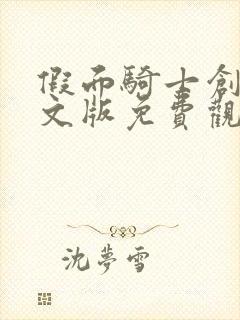 假面騎士創
文版免費觀
沈夢雪